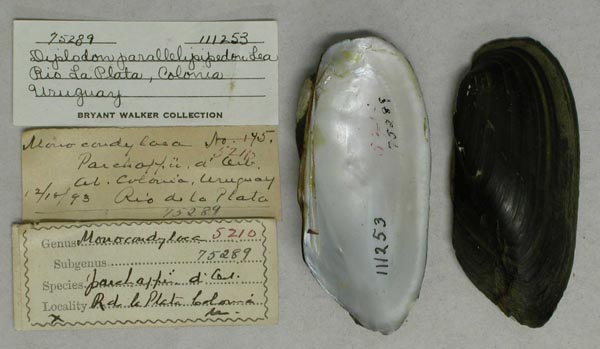 75289 111253
Diplodon parallelipipedon Lea
Rio La Plata, Colonia
Uruguay
BRYANT WALKER COLLECTION
Monocondyloea No. 145.
5210
Parchappii d'Orb.
Colonia, Uruguay
12/16/93 Rio de la Plata
75289
Genus Monocondyloea 5210
Subgenus 75289
Species parchappii d'Orb.
Locality R de la Plata Colonia
x
5210
75289
111253